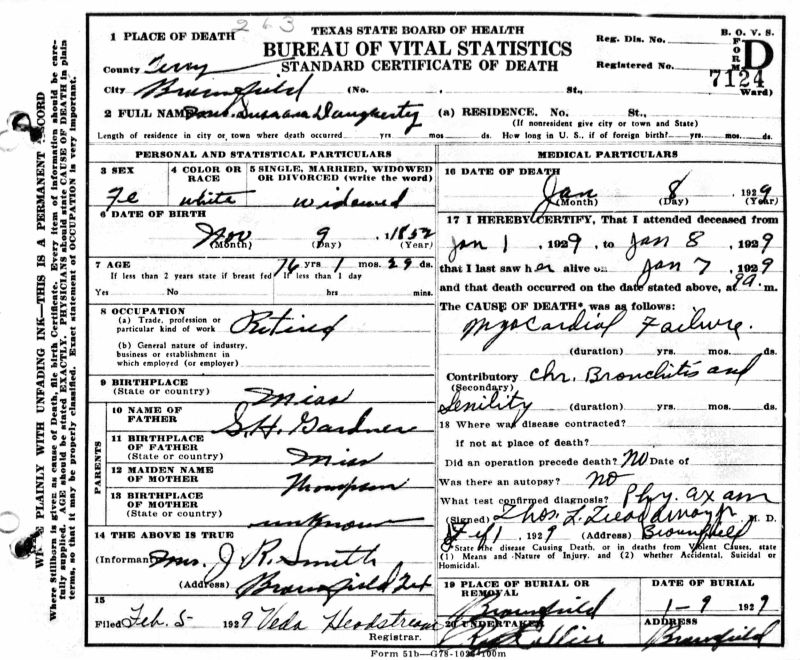 263
TEXAS STATE BOARD OF HEALTH
BUREAU OF VITAL STATISTICS
STANDARD CERTIFICATE OF DEATH
B. O. V. S.
FORM D
Reg. Dis. No.
Registered No.
7124
1 PLACE OF DEATH
County Terry
City Brownfield (No. , St., Ward)
2 FULL NAME Mrs. Susana Daugherty (a) RESIDENCE. No. St.,
(If nonresident give city or town and State)
Length of residence in city or town where death occurred yrs. mos. ds. How long in U. S., if of foreign birth? yrs. mos. ds.
PERSONAL AND STATISTICAL PARTICULARS
3 SEX Fe
4 COLOR OR RACE white
5 SINGLE, MARRIED, WIDOWED OR DIVORCED (write the word) widowed
6 DATE OF BIRTH
Nov 9 1852
(Month) (Day) (Year)
7 AGE 76 yrs 1 mos. 29 ds.
If less than 2 years state if breast fed If less than 1 day
Yes No hrs mins.
8 OCCUPATION
(a) Trade, profession or particular kind of work Retired
(b) General nature of industry, business or establishment in which employed (or employer)
9 BIRTHPLACE
(State or country) Miss
PARENTS
10 NAME OF FATHER S. H. Gardner
11 BIRTHPLACE OF FATHER
(State or country) Miss
12 MAIDEN NAME OF MOTHER Thompson
13 BIRTHPLACE OF MOTHER
(State or country) unknown
14 THE ABOVE IS TRUE
(Informant) Mrs. J. R. Smith
(Address) Brownfield Tex
15
Filed Feb. 5- 1929 Veda Headstream
Registrar.
MEDICAL PARTICULARS
16 DATE OF DEATH
Jan 8 1929
(Month) (Day) (Year)
17 I HEREBY CERTIFY, That I attended deceased from
Jan 1, 1929, to Jan 8, 1929
that I last saw her alive on Jan 7, 1929
and that death occurred on the date stated above, at 9a. m.
The CAUSE OF DEATH* was as follows:
Myocardial Failure.
(duration) yrs. mos. ds.
Contributory Chr. Bronchitis and
(Secondary)
Senility (duration) yrs. mos. ds.
18 Where was disease contracted?
if not at place of death?
Did an operation precede death? No Date of
Was there an autopsy? no
What test confirmed diagnosis? Phy. exam
(Signed) Thos. L. M. D.
1929 (Address) Brownfield
*State the disease Causing Death, or in deaths from Violent Causes, state
(1) Means and Nature of Injury, and (2) whether Accidental, Suicidal or
Homicidal.
19 PLACE OF BURIAL OR REMOVAL
Brownfield
DATE OF BURIAL
1-9 1929
20 UNDERTAKER
Collier
ADDRESS
Brownfield
Form 51b—G78-1028-100m
WRITE PLAINLY WITH UNFADING INK—THIS IS A PERMANENT RECORD
Where Stillborn is given as cause of Death, file birth Certificate. Every item of information should be care-
fully supplied. AGE should be stated EXACTLY. PHYSICIANS should state CAUSE OF DEATH in plain
terms, so that it may be properly classified. Exact statement of OCCUPATION is very important.